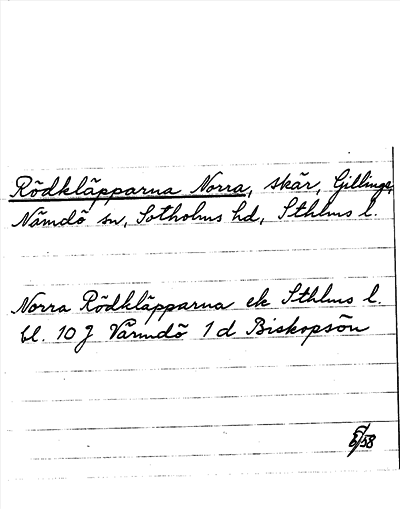 Rödkläpparna Norra, skär, Gillinge,
Nämdö sn, Sotholms hd, Sthlms l.
Norra Rödkläpparna ek Sthlms l.
bl. 10 J Värmdö 1 d Biskopsön
/58